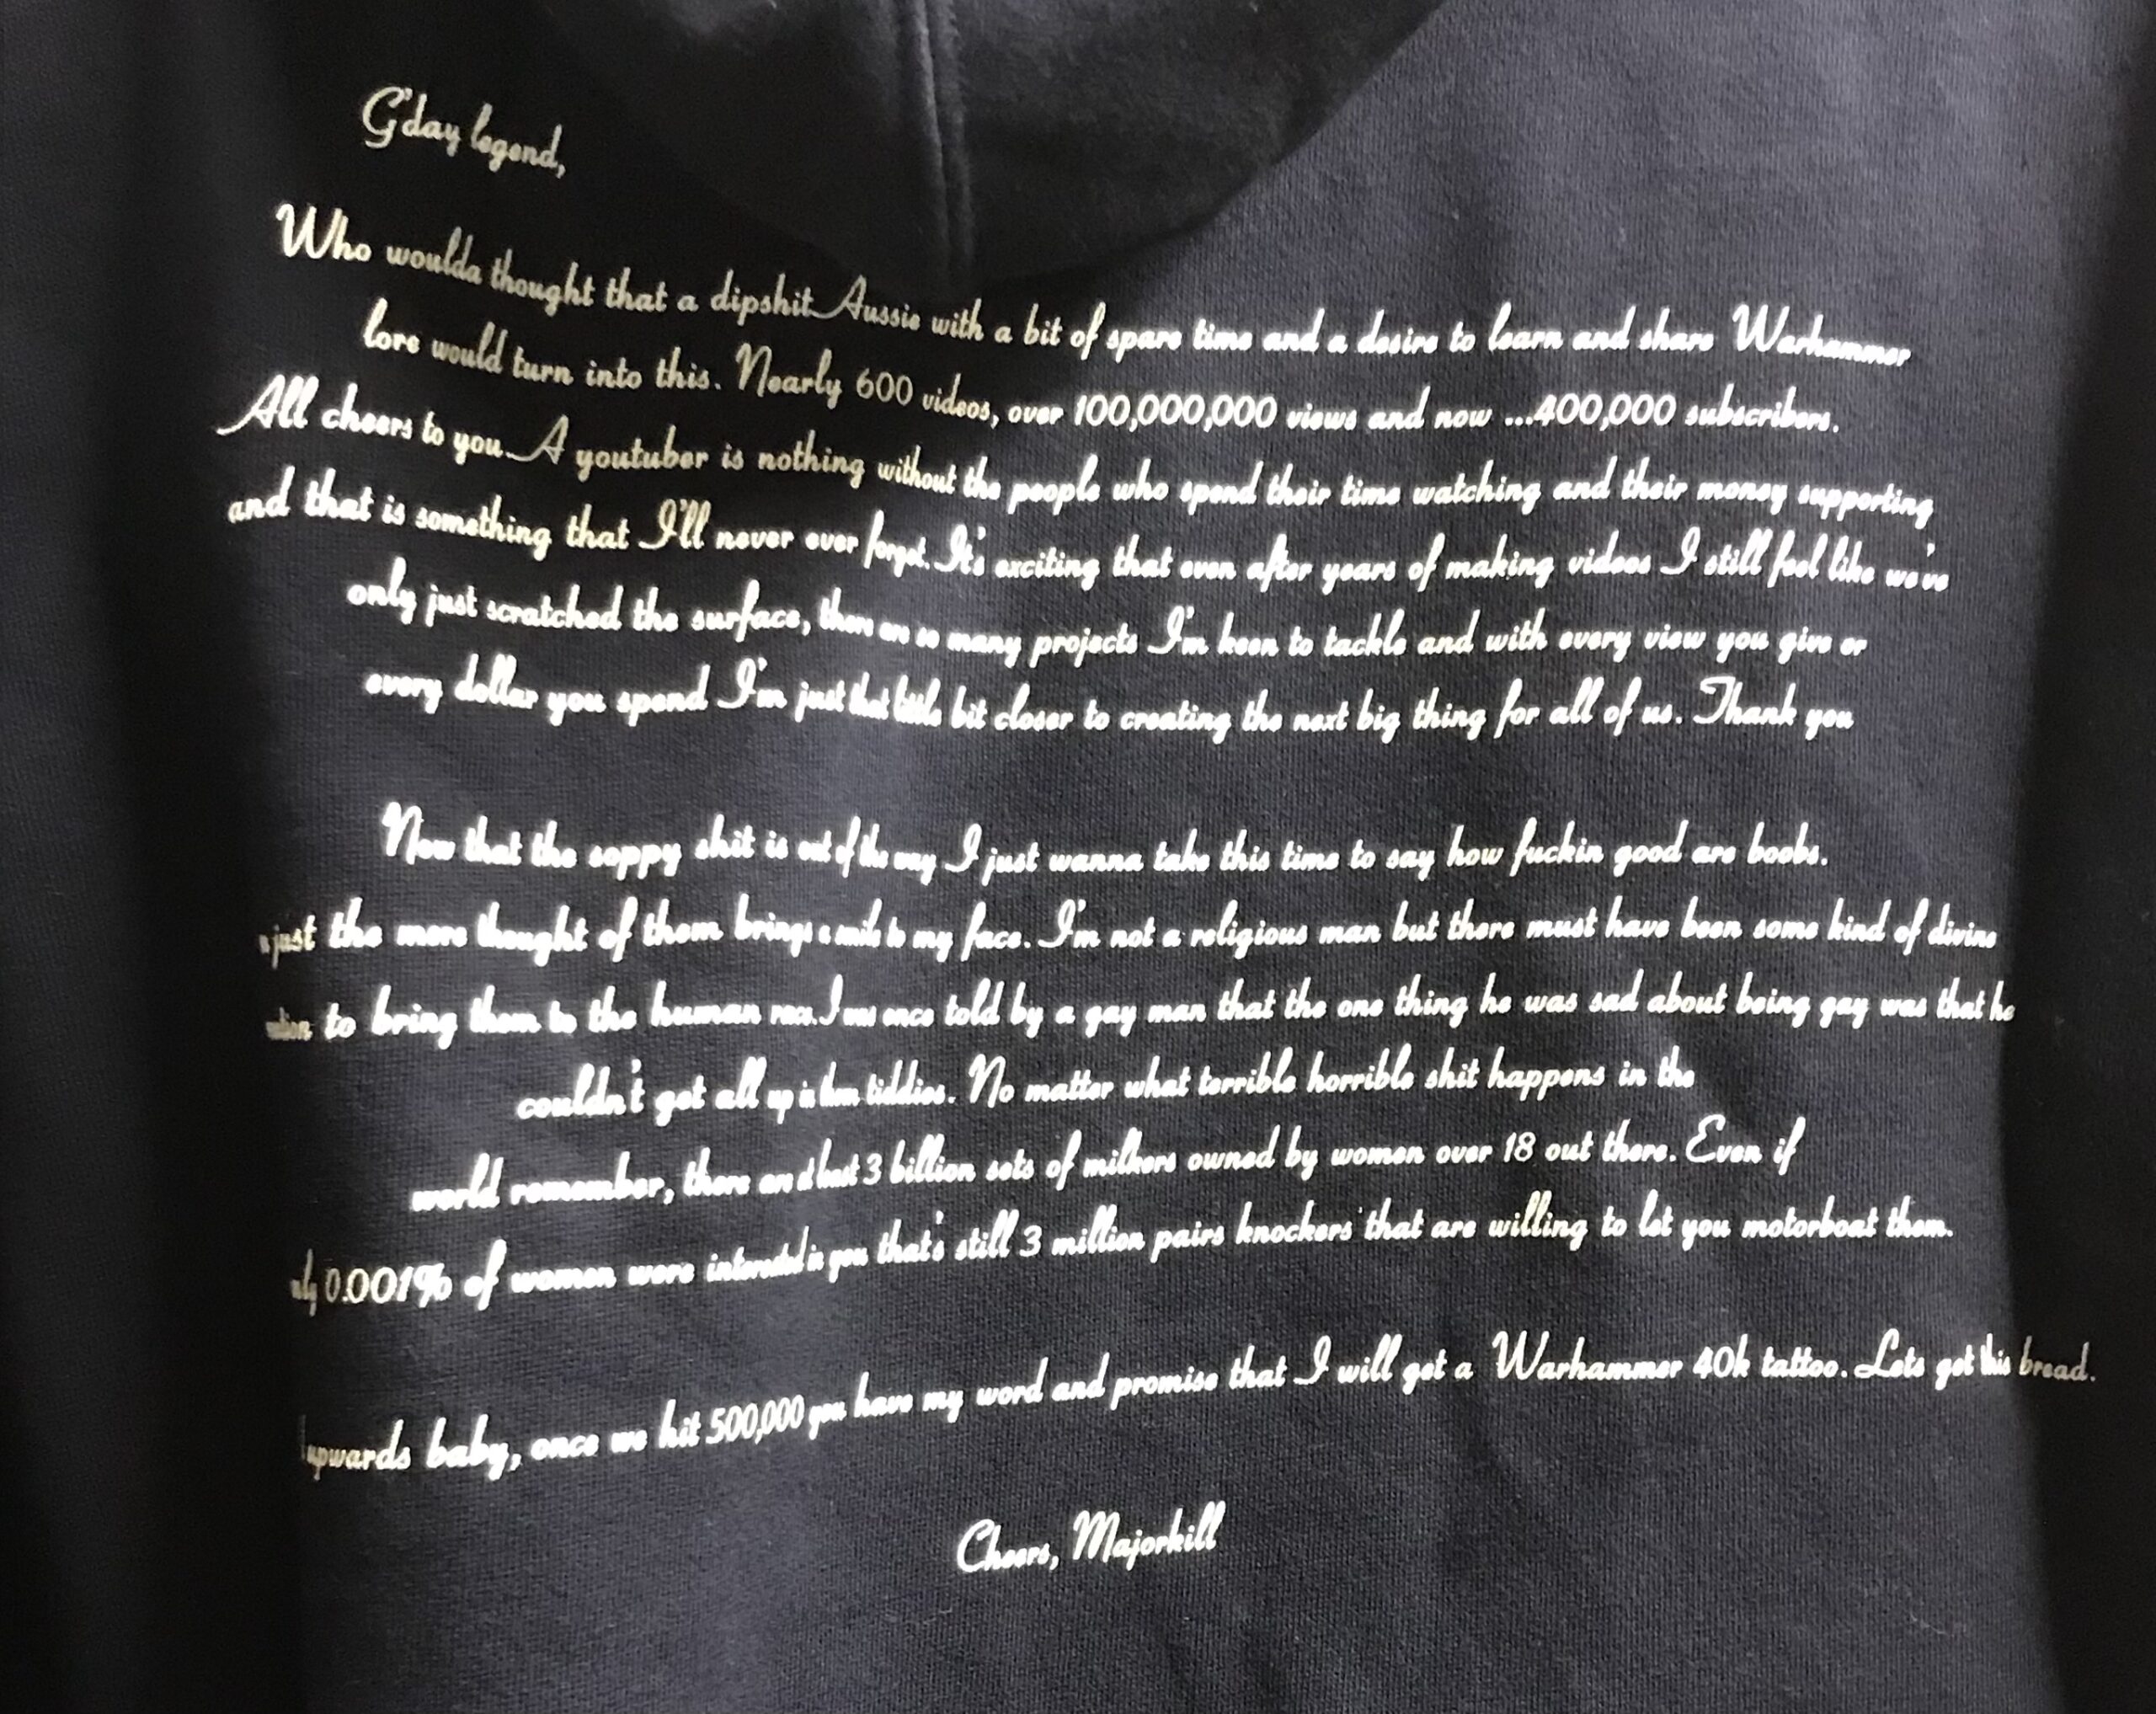 G'day legend,
Who woulda thought that a dipshit Aussie with a bit of spare time and a desire to learn and share Warhammer
lore would turn into this. Nearly 600 videos, over 100,000,000 views and now ...400,000 subscribers.
All cheers to you. A youtuber is nothing without the people who spend their time watching and their money supporting
and that is something that I'll never ever forget. It's exciting that even after years of making videos I still feel like we've
only just scratched the surface, there are so many projects I'm keen to tackle and with every view you give or
every dollar you spend I'm just that little bit closer to creating the next big thing for all of us. Thank you
Now that the soppy shit is out of the way I just wanna take this time to say how fuckin good are boobs.
just the mere thought of them brings a smile to my face. I'm not a religious man but there must have been some kind of divine
to bring them to the human race. I was once told by a gay man that the one thing he was sad about being gay was that he
couldn't get all up in them tiddies. No matter what terrible horrible shit happens in the
world remember, there are at least 3 billion sets of milkers owned by women over 18 out there. Even if
0.001% of women were interested in you that's still 3 million pairs knockers that are willing to let you motorboat them.
upwards baby, once we hit 500,000 you have my word and promise that I will get a Warhammer 40k tattoo. Lets get this bread.
Cheers, Majorkill